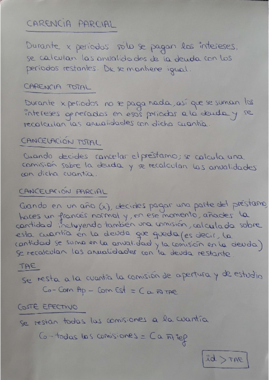 CARENCIA PARCIAL
Durante x periodos solo se pagan los intereses.
se calculan las anualidades de la deuda con los
periodos restantes. Ds se mantiene igual.
CARENCIA TOTAL
Durante x periodos no se paga nada, así que se suman los
intereses generados en esos periodos a la deuda y se
recalculan las anualidades con dicha cuantía.
CANCELACIÓN TOTAL
Cuando decides cancelar el préstamo, se calcula una
comisión sobre la deuda y se recalculan las anualidades
con dicha cuantía.
CANCELACIÓN PARCIAL
Cuando en un año (x), decides pagar una parte del préstamo
haces un francés normal y, en ese momento, añades la
cantidad incluyendo también una comisión, calculada sobre
esta cuantía en la deuda que queda (es decir, la
cantidad se suma en la anualidad y la comisión en la deuda)
Se recalculan las anualidades con la deuda restante
TAE
Se resta a la cuantía la comisión de apertura y de estudio
Co - Com Ap - Com Est = C a
TAE
COSTE EFECTIVO
Se restan todas las comisiones a la cuantía
Co - todas las comisiones = C a
id > TAE